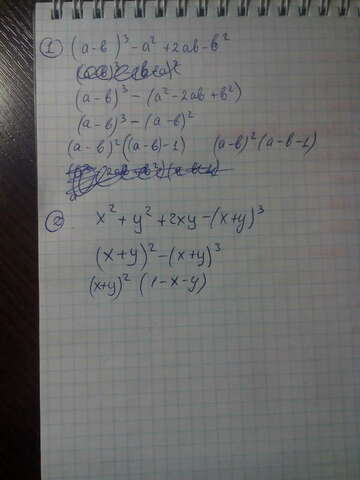 ① (a-b)³-a²+2ab-b²
(a-b)³-(a²-2ab+b²)
(a-b)³-(a-b)²
(a-b)²((a-b)-1) (a-b)²(a-b-1)
② x²+y²+2xy-(x+y)³
(x+y)²-(x+y)³
(x+y)² (1-x-y)